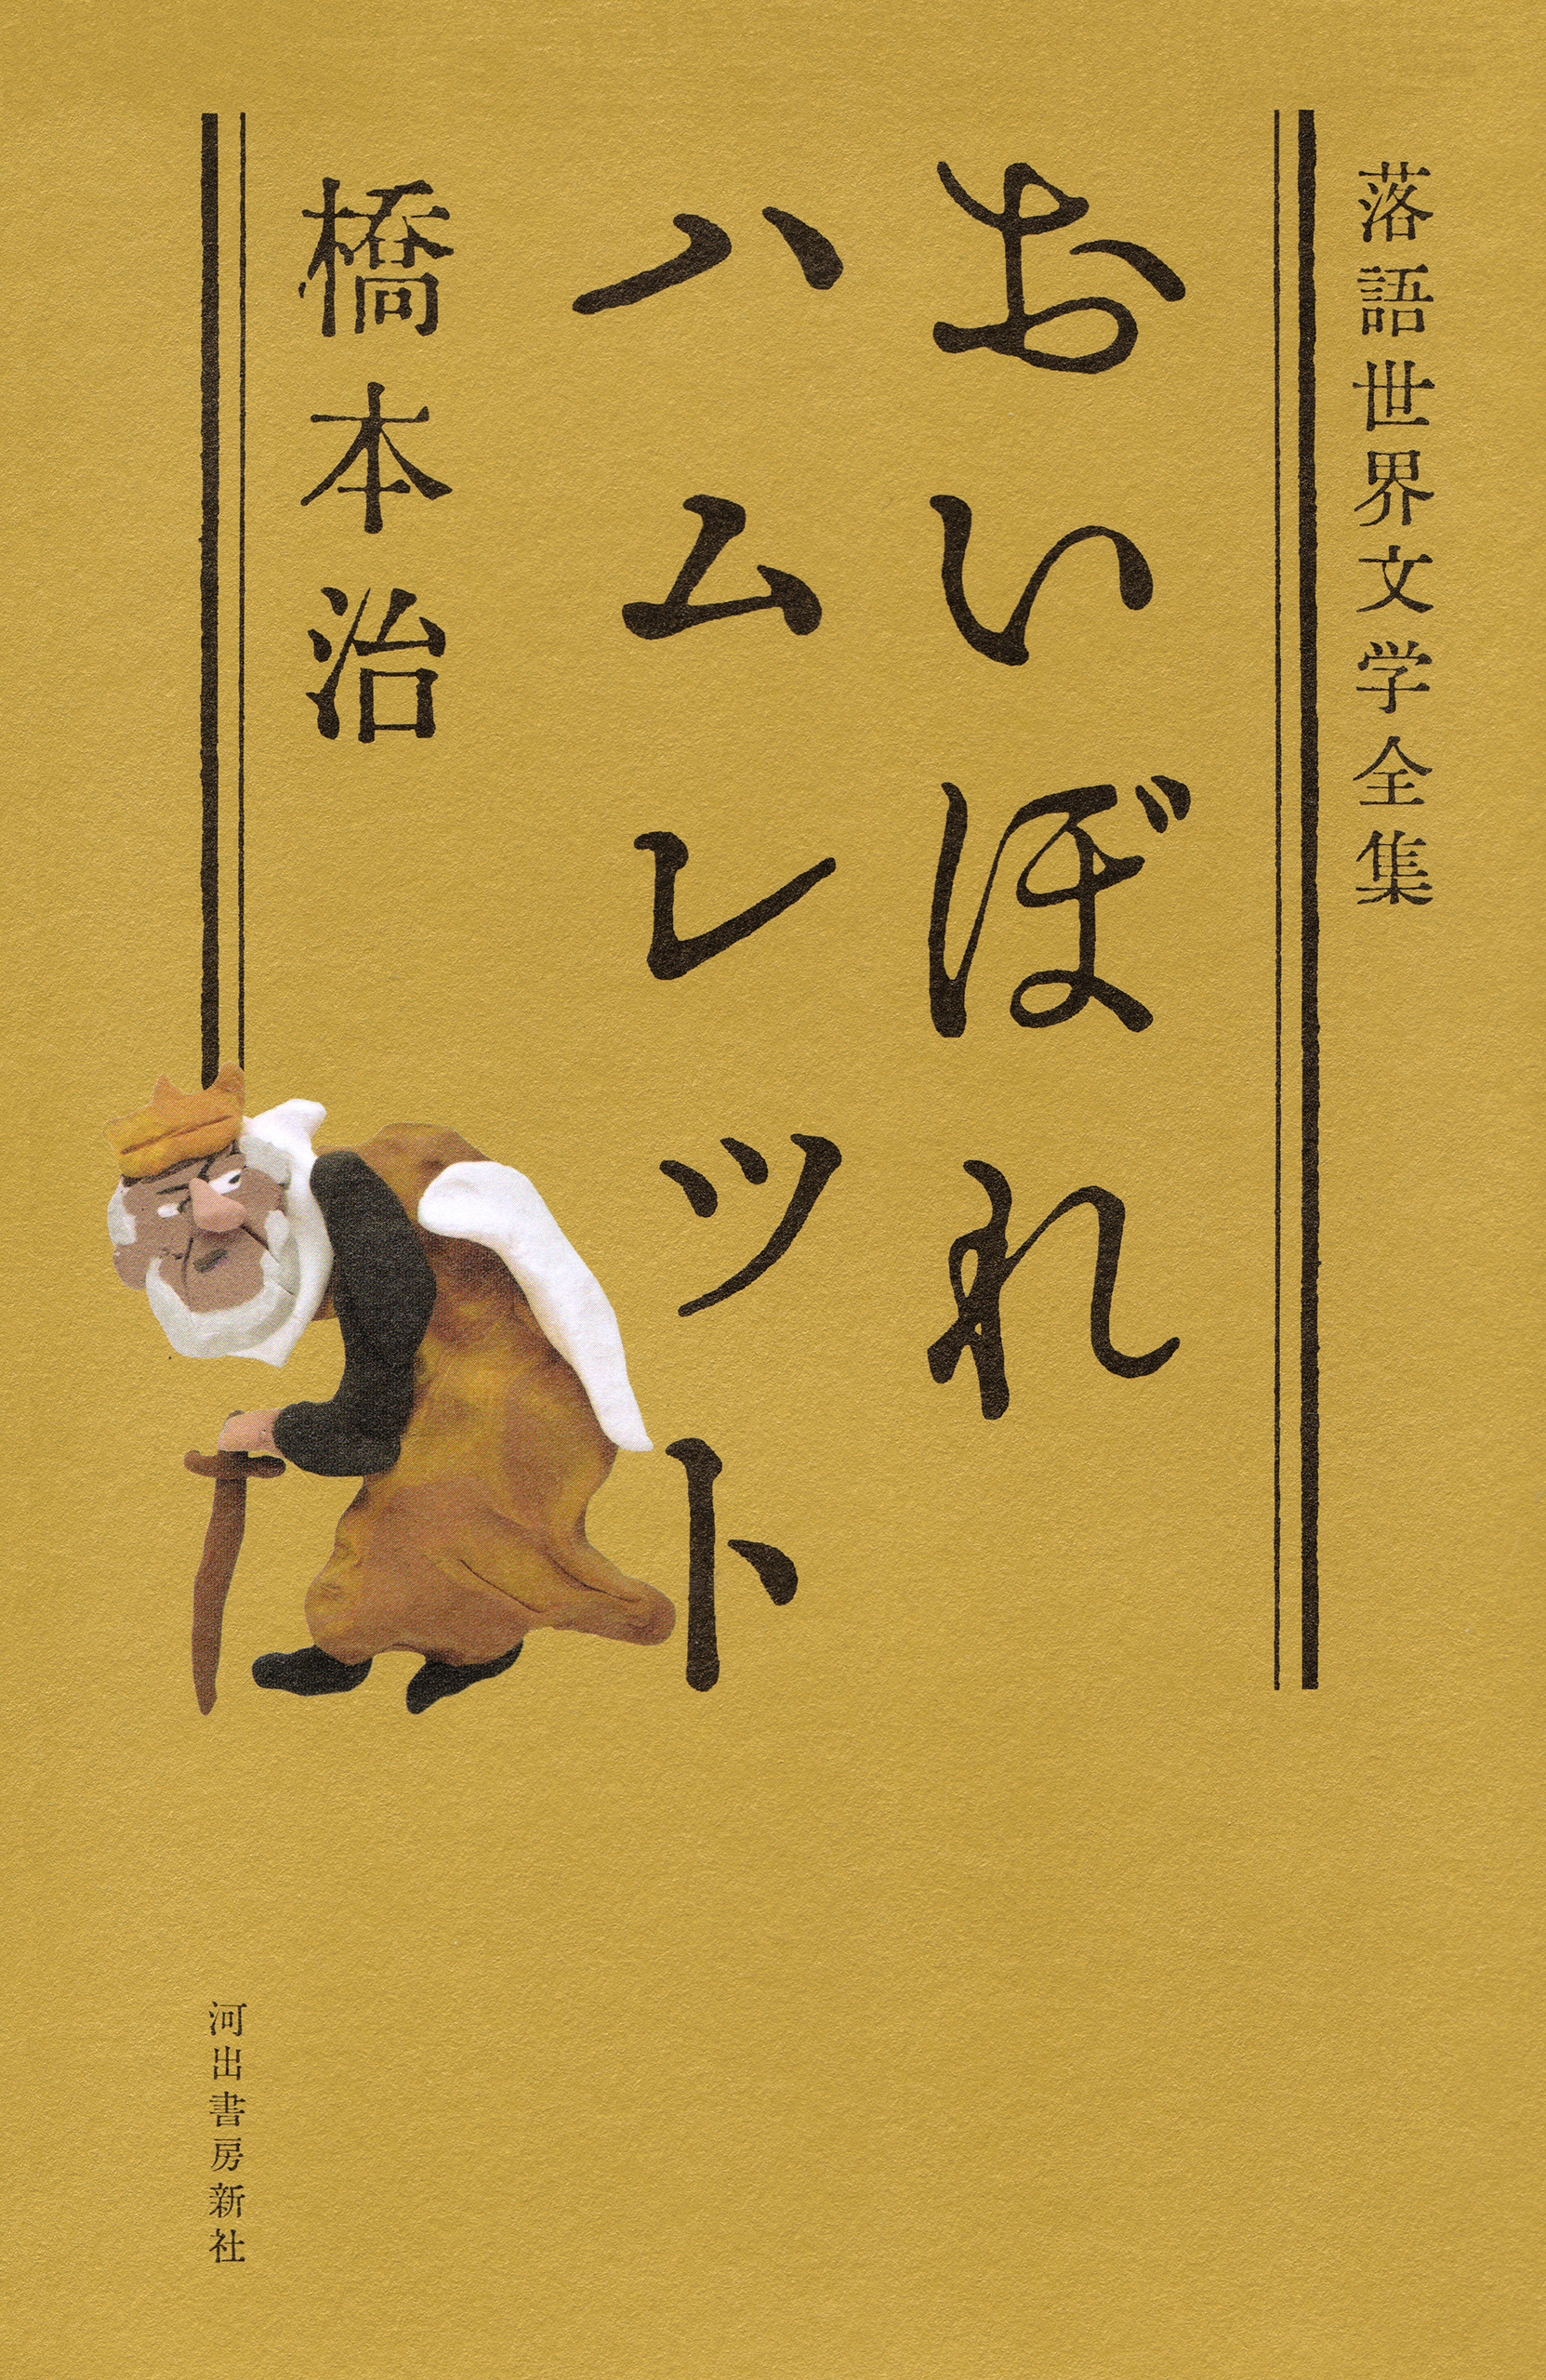 落語世界文学全集
おいぼれ
ハムレット
橋本治
河出書房新社